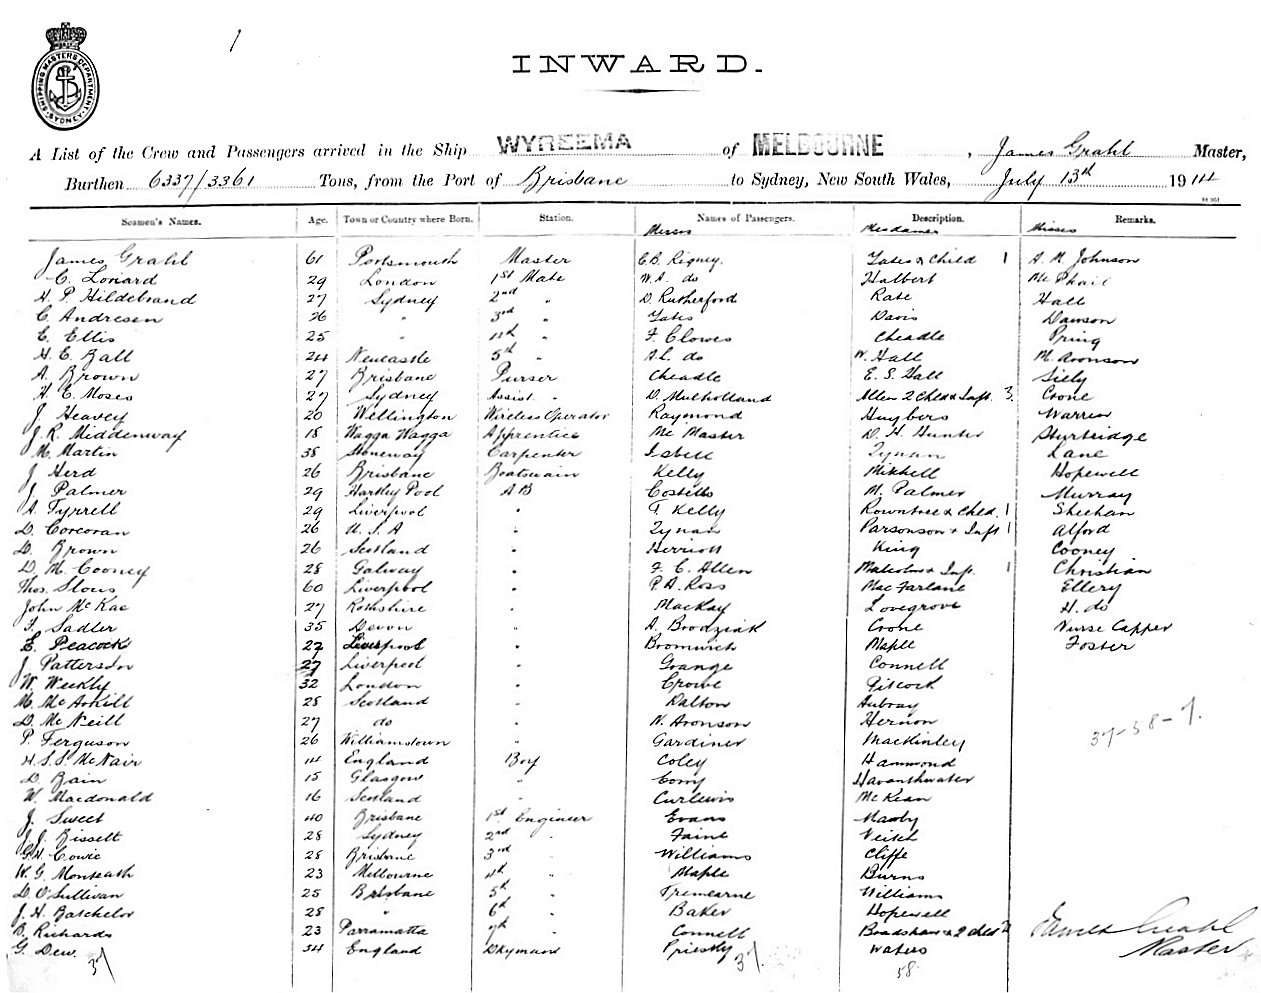 1
SHIPPING MASTERS DEPARTMENT
SYDNEY
INWARD.
A List of the Crew and Passengers arrived in the Ship WYREEMA of MELBOURNE, James Grahl Master,
Burthen 6337/3361 Tons, from the Port of Brisbane to Sydney, New South Wales, July 13th 1914
Seamen's Names. Age. Town or Country where Born. Station. Names of Passengers. Description. Remarks.
Messrs Mesdames Misses
James Grahl 61 Portsmouth Master C.B. Rigney. Yates & Child 1 A. M. Johnson
C. Loriard 29 London 1st Mate W.A. do Halbert Mc Phail
H. P. Hildebrand 27 Sydney 2nd " D. Rutherford Rate Hall
C. Andresen 26 " 3rd " Yates Davis Dawson
E. Ellis 25 " 4th " F. Clowes Cheadle Pring
H. E. Ball 24 Newcastle 5th " A.L. do W. Hall M. Aronson
A. Brown 27 Brisbane Purser Cheadle E. S. Hall
H. E. Moses 27 Sydney Assist. " D. Mulholland Allen 2 Child & Inft. 3 Crone
J. Heavey 20 Wellington Wireless Operator Raymond Huybers Warren
J. R. Middenway 18 Wagga Wagga Apprentice Mc Master D. H. Hunter Sturbridge
M. Martin 38 Carpenter Isbell Tynan Lane
J Herd 26 Brisbane Boatswain Kelly Mitchell Hopewell
J. Palmer 29 Hartley Pool A B Costello M. Palmer Murray
A. Tyrrell 29 Liverpool " T. Kelly Rowntree & Child. 1 Sheehan
D. Corcoran 26 U. S. A " Tynan Parsonson & Inft 1 Alford
D. Brown 26 Scotland " Herriott King Cooney
D. M. Cooney 28 Galway " F. C. Allen Malcolm & Inf. 1 Christian
Thos. Slous 60 Liverpool " P. A. Ross Mac Farlane Ellery
John McRae 27 Rothshire " MacKay Lovegrove H. do
F. Sadler 35 Devon " A. Brodziak Crone Nurse Capper
E. Peacock 27 Liverpool " Bromwich Maple Foster
J. Patterson 27 Liverpool " Grange Connell
W. Weekly 32 London " Crowe Pitcock
M. McAskill 28 Scotland " Dalton Aubray
D. McNeill 27 do " N. Aronson Hernon
P. Ferguson 26 Williamstown " Gardiner MacKinley 37-58-1.
H.S.S. McNair 14 England Boy Coley Hammond
D. Bain 15 Glasgow " Corry
W. Macdonald 16 Scotland " Curlewis Mc Kean
J. Sweet 40 Brisbane 1st Engineer Evans Manby
J. J. Bissett 28 Sydney 2nd " Faine Veitch
G.H. Cowie 28 Brisbane 3rd " Williams Cliffe
W. G. Monteath 23 Melbourne 4th " Maple Burns
D. O'Sullivan 25 Brisbane 5th " Tremearne Williams
J. H. Batchelor 28 " 6th " Baker Hopewell
B. Richards 23 Parramatta 7th " Connell Bradshaw & 2 child 2 James Grahl
G. Dew. 34 England Dkyman Priestly Waters Master
37 37. 58